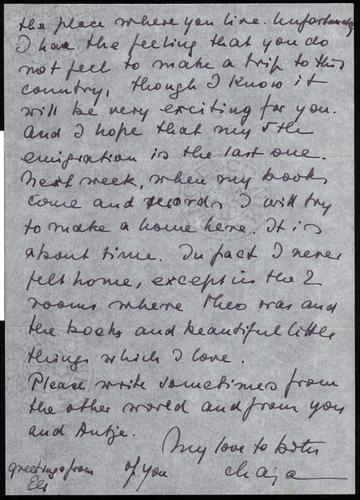 the place where you live. Unfortunately
I have the feeling that you do
not feel to make a trip to this
country, though I know it
will be very exciting for you.
And I hope that my 5th
emigration is the last one.
Next week, when my books
come and records I will try
to make a home here. It is
about time. In fact I never
felt home, except in the 2
rooms where Theo was and
the books and beautiful little
things which I love.
Please write sometimes from
the other world and from you
and Antje.
My love to both
of you
Chaja
greetings from
Eli